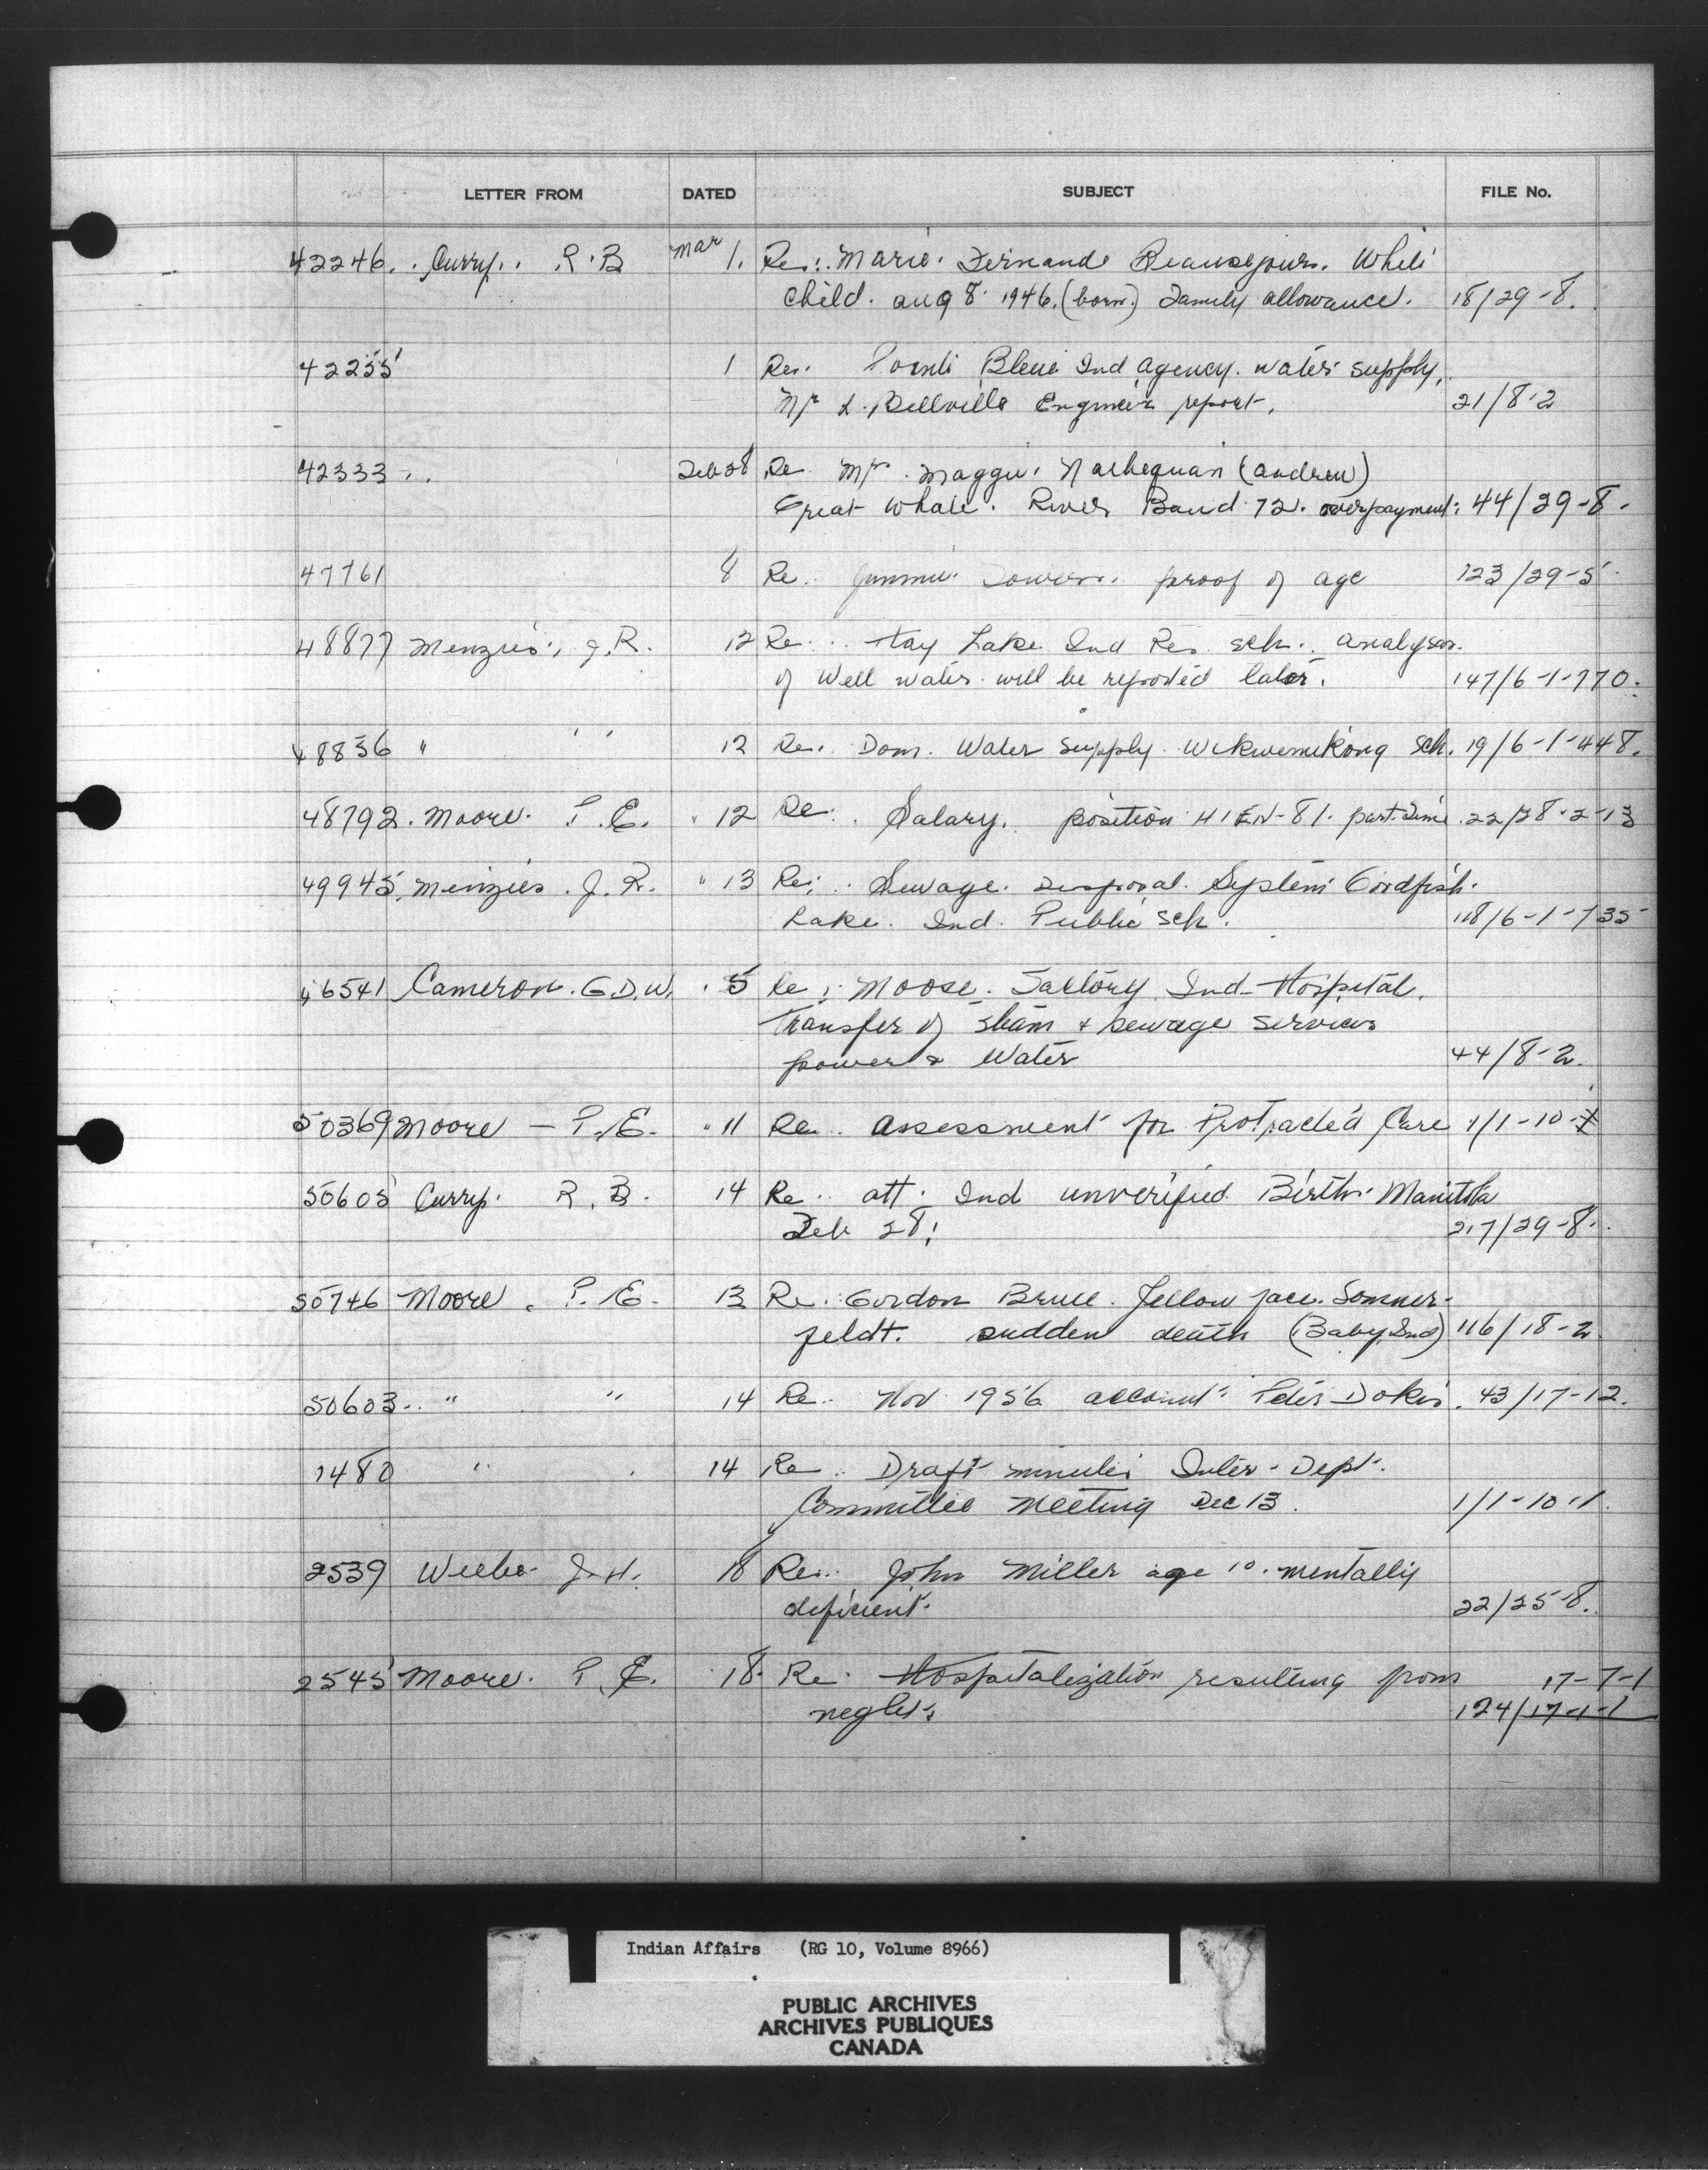 LETTER FROM DATED SUBJECT FILE No.
42246. Curry. R.B Mar 1. Re: Marie. Fernande Beausejour. White
child. Aug 8 1946. (born.) Family allowance. 18/29-8.
42255 1 Re. Pointe Bleue Ind Agency. water supply,
Mr L. Bellville Engineer report. 21/8-2
42333 Feb 28 Re. Mr. Maggie (Andrew)
Great Whale. River Band 72. overpayment. 44/29-8.
47761 8 Re. Jimmie proof of age 123/29-5
48877 Menzies, J.R. 12 Re. Hay Lake Ind Res. sch. analyses.
of Well water will be reported later. 147/6-1-770.
48836 " " 12 Re. Dom. Water supply. Wikwemikong Sch. 19/6-1-448.
48792. Moore. P.E. " 12 Re. Salary. position HIEN-81. part-time. 22/28-2-13
49945. Menzies. J.R. " 13 Re; Sewage. Disposal. System Goodfish.
Lake. Ind. Public sch. 118/6-1-735
46541 Cameron. G.D.W. 5 Re: Moose. Factory Ind. Hospital.
Transfer of steam & sewage services
power & Water 44/8-2.
50369 Moore - P.E. " 11 Re. Assessment for Protracted Care 1/1-10-
50605 Curry. R.B. 14 Re. att. Ind unverified. Births. Manitoba
Feb 28. 217/29-8.
50746 Moore. P.E. 13 Re. Gordon Bruce. Yellow face. Sommer-
feldt. sudden death (Baby Ind) 116/18-2
50603 " " 14 Re. Nov 1956 account. Peter Dokis. 43/17-12.
1480 " 14 Re. Draft minutes Inter-Dept.
Committee Meeting Dec 13. 1/1-10-1.
2539 J.H. 18 Re. John Miller age 10. mentally
deficient. 22/25-8.
2545 Moore. P.E. 18. Re. Hospitalization resulting from 17-7-1
neglect. 124/17-1-1
Indian Affairs (RG 10, Volume 8966)
PUBLIC ARCHIVES
ARCHIVES PUBLIQUES
CANADA